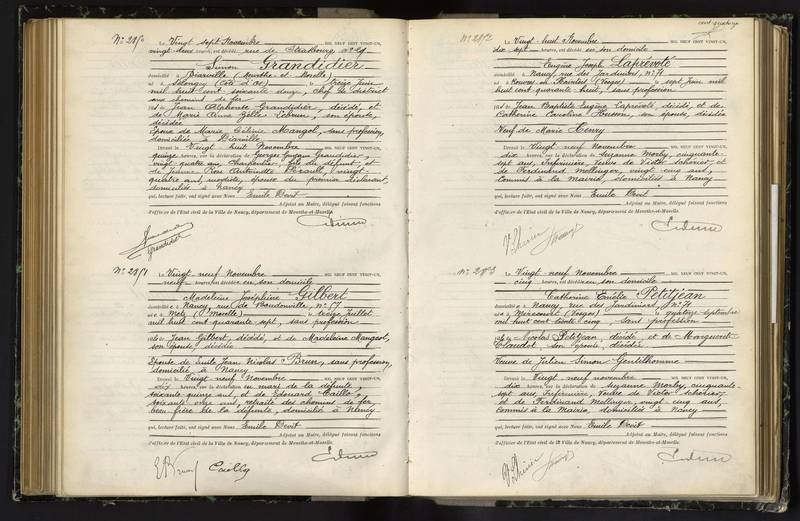 Nº 2850
Le Vingt sept Novembre MIL NEUF CENT VINGT-UN,
vingt-deux heures, est décédé rue de Strasbourg, nº 69
Simon Grandidier
domicilié à Blainville (Meurthe et Moselle)
né à (Côte d'Or) le treize Juin
mil huit cent soixante douze, Chef de district
aux chemins de fer
fils de Jean Alphonse Grandidier, décédé, et
de Marie Anne Lebrun, son épouse,
décédée
Époux de Marie Célinie Mangol, sans profession,
domiciliée à Blainville
Devant le Vingt huit Novembre
quinze heures, sur la déclaration de Georges Grandidier,
vingt quatre ans, Charpentier, fils du défunt, et
de Jeanne Rose Antoinette vingt-
quatre ans, épouse du premier déclarant,
domiciliés à Nancy
qui, lecture faite, ont signé avec Nous Emile Devit
Adjoint au Maire, délégué faisant fonctions
d'officier de l'État civil de la Ville de Nancy, département de Meurthe-et-Moselle.
Grandidier
Nº 2851
Le Vingt neuf Novembre MIL NEUF CENT VINGT-UN,
neuf heures, est décédée en son domicile
Madeleine Joséphine Gilbert
domiciliée à Nancy, rue de Boudonville, nº 57
née à Metz (Moselle) le treize Juillet
mil huit cent quarante sept, sans profession
fille de Jean Gilbert, décédé, et de Madeleine Mangeol,
son épouse, décédée
Épouse de Emile Jean Nicolas Brun, sans profession,
domicilié à Nancy
Devant le Vingt neuf Novembre
dix heures, sur la déclaration du mari de la défunte,
soixante quinze ans, et de Edouard Cailly,
soixante cinq ans, retraité des chemins de fer,
beau frère de la défunte, domicilié à Nancy
qui, lecture faite, ont signé avec Nous Emile Devit
Adjoint au Maire, délégué faisant fonctions
d'officier de l'État civil de la Ville de Nancy, département de Meurthe-et-Moselle.
Cailly
Nº 2852
Le Vingt huit Novembre MIL NEUF CENT VINGT-UN,
dix sept heures, est décédé en son domicile
Eugène Joseph Laprévoté
domicilié à Nancy, rue des Jardiniers, nº 71
né à (Vosges) le sept Juin mil
huit cent quarante huit, sans profession
fils de Jean Baptiste Eugène Laprévoté, décédé, et de
Catherine Caroline Husson, son épouse, décédée
Veuf de Marie Henry
Devant le Vingt neuf Novembre
dix heures, sur la déclaration de Suzanne Morby, cinquante
sept ans, Infirmière, Veuve de Victor Scherier, et
de Ferdinand Mellinger, vingt cinq ans,
Commis à la mairie, domiciliés à Nancy
qui, lecture faite, ont signé avec Nous Emile Devit
Adjoint au Maire, délégué faisant fonctions
d'officier de l'État civil de la Ville de Nancy, département de Meurthe-et-Moselle.
Nº 2853
Le Vingt neuf Novembre MIL NEUF CENT VINGT-UN,
cinq heures, est décédée en son domicile
Catherine Emélie Petitjean
domiciliée à Nancy, rue des Jardiniers, nº 71
née à Mirecourt (Vosges) le quatorze Septembre
mil huit cent trente cinq, sans profession
fille de Nicolas Petitjean, décédé et de Marguerite
Claudot son épouse, décédée
Veuve de Julien Simon Gentilhomme
Devant le Vingt neuf novembre
dix heures, sur la déclaration de Suzanne Morby, cinquante
sept ans, Infirmière, Veuve de Victor Scherier,
et de Ferdinand Mellinger, vingt cinq ans
Commis à la Mairie, domiciliés à Nancy
qui, lecture faite, ont signé avec Nous Emile Devit
Adjoint au Maire, délégué faisant fonctions
d'officier de l'État civil de la Ville de Nancy, département de Meurthe-et-Moselle.